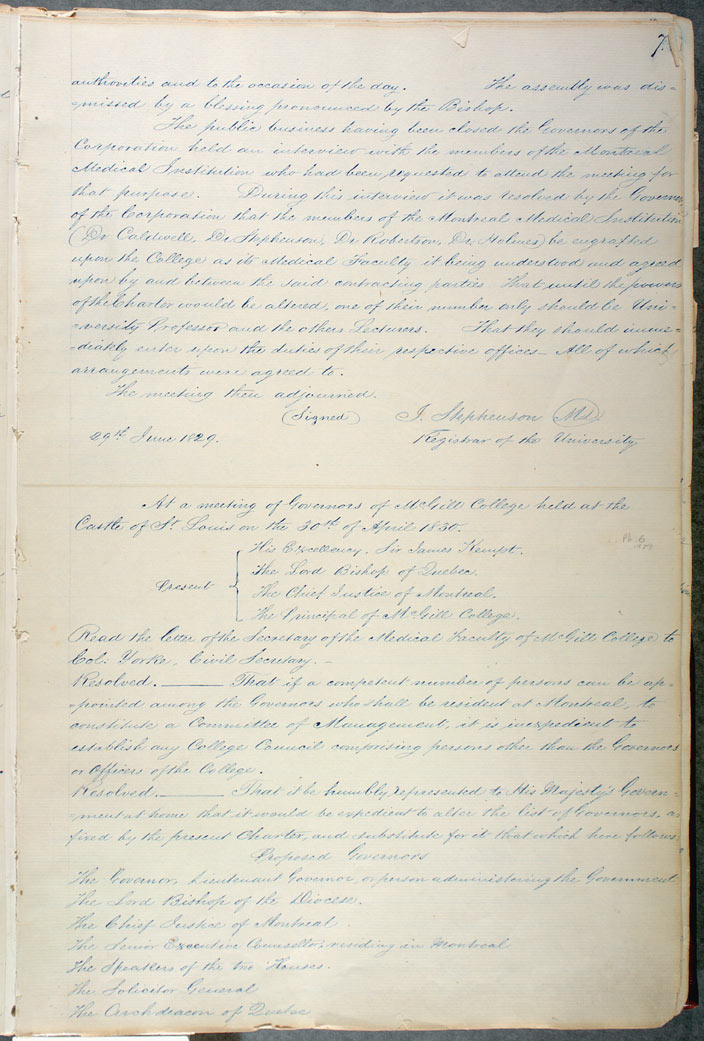 7.
authorities and to the occasion of the day. The assembly was dis-
-missed by a blessing pronounced by the Bishop.
The public business having been closed the Governors of the
Corporation held an interview with the members of the Montreal
Medical Institution who had been requested to attend the meeting for
that purpose. During this interview it was resolved by the Governors
of the Corporation that the members of the Montreal Medical Institution
(Dr Caldwell, Dr Stephenson, Dr Robertson, Dr. Holmes) be engrafted
upon the College as its Medical Faculty it being understood and agreed
upon by and between the said contracting parties. That until the powers
of the Charter would be altered, one of their number only should be Uni-
-versity Professor and the others Lecturers. That they should imme-
-diately enter upon the duties of their respective offices - All of which
arrangements were agreed to.
The meeting then adjourned.
(Signed) J. Stephenson Md.
29th June 1829. Registrar of the University
At a meeting of Governors of McGill College held at the
Castle of St. Louis on the 30th of April 1830.
His Excellency, Sir James Kempt.
The Lord Bishop of Quebec.
Present
The Chief Justice of Montreal.
The Principal of McGill College.
Read the letter of the Secretary of the Medical Faculty of McGill College to
Col: Yorke, Civil Secretary. -
Resolved. ——— That if a competent number of persons can be ap-
-pointed among the Governors who shall be resident at Montreal, to
constitute a Committee of Management, it is inexpedient to
establish any College Council comprising persons other than the Governors
or Officers of the College.
Resolved. ——— That it be humbly represented to His Majesty's Govern-
-ment at home that it would be expedient to alter the list of Governors, as
fixed by the present Charter, and substitute for it that which here follows.
Proposed Governors
The Governor, Lieutenant Governor, or person administering the Government
The Lord Bishop of the Diocese.
The Chief Justice of Montreal.
The Senior Executive Counsellor, residing in Montreal
The Speakers of the two Houses.
The Solicitor General
The Archdeacon of Quebec